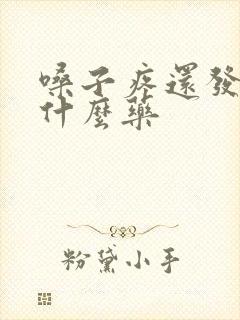 嗓子疼還發
什麼藥
粉黛小手